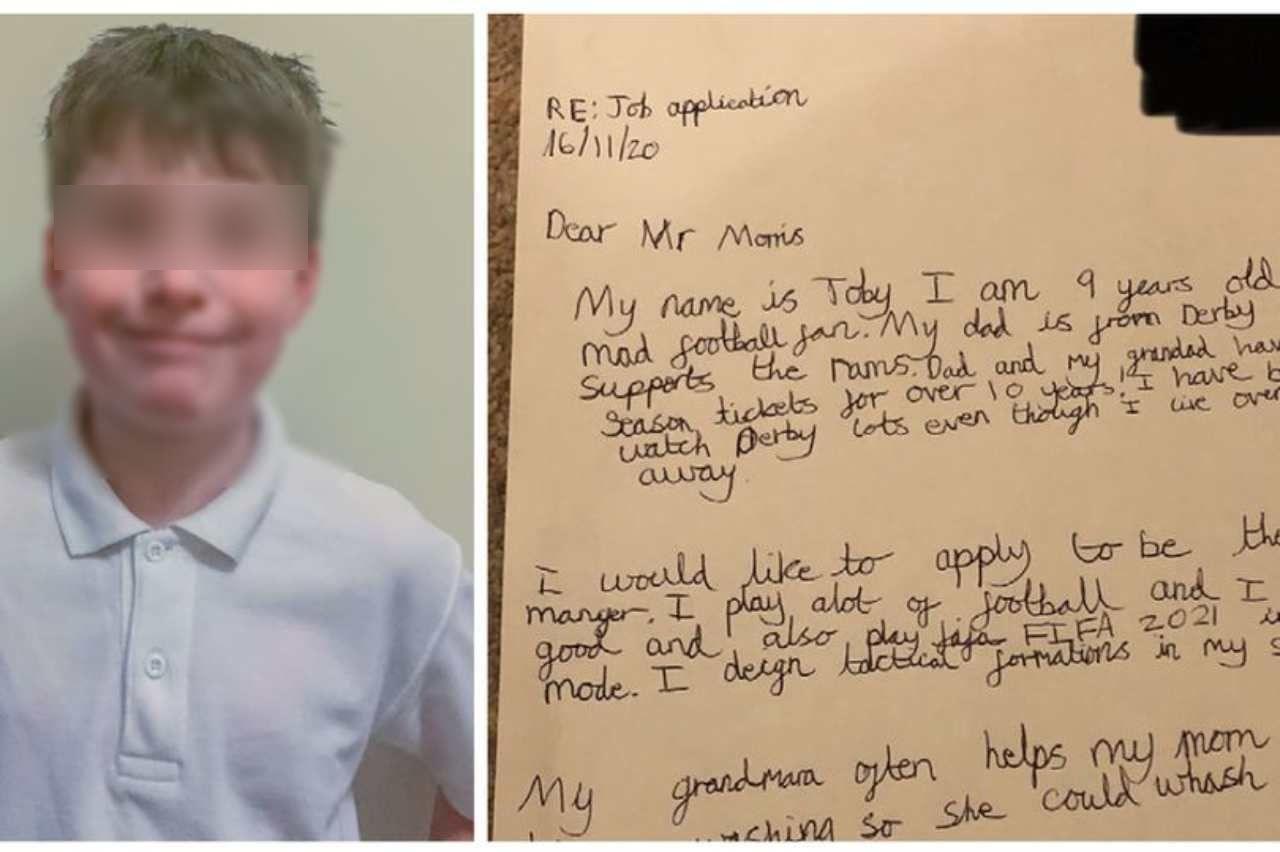 RE: Job application
16/11/20
Dear Mr Morris
My name is Toby I am 9 years old
mad football fan. My dad is from Derby
supports the rams. Dad and my grandad hav
season tickets for over 10 years! I have b
watch Derby lots even though I live over
away.
I would like to apply to be the
manger. I play alot of football and I
good and also play fifa FIFA 2021 i
mode. I deign tactical formations in my s
My grandmara often helps my mom
so she could whash